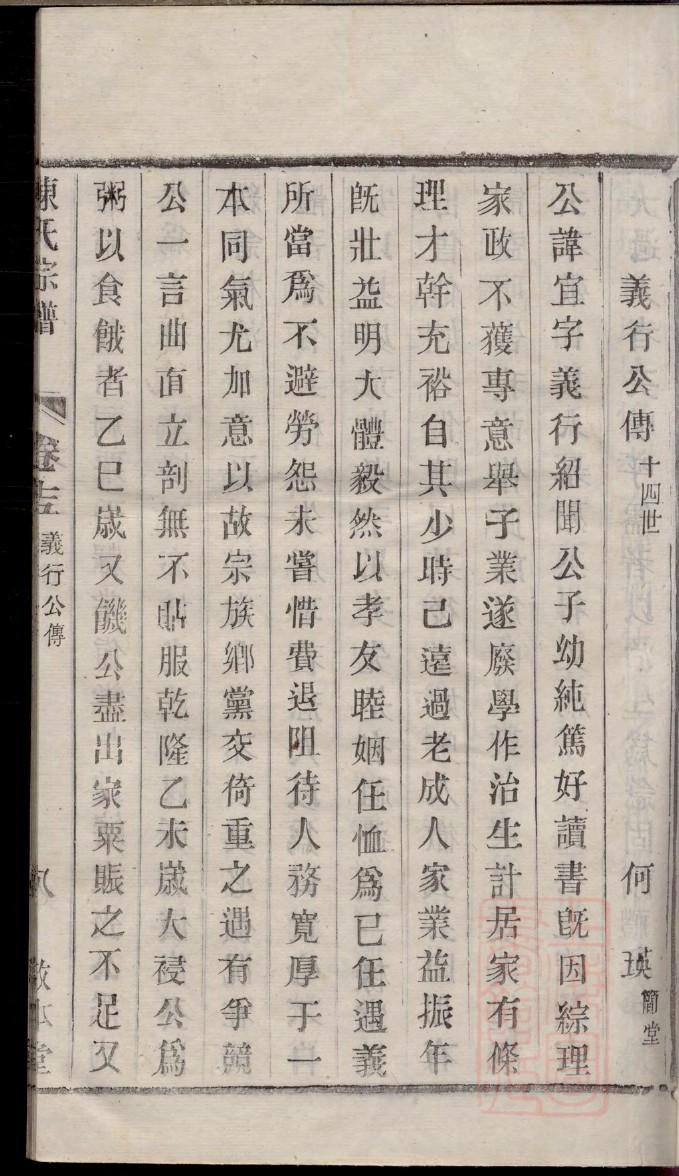 義行公傳 十四世 何 瑛 簡堂
公諱宜字義行紹聞公子幼純篤好讀書旣因綜理
家政不獲專意舉子業遂廢學作治生計居家有條
理才幹充裕自其少時已遠過老成人家業益振年
旣壯益明大體毅然以孝友睦姻任恤爲己任遇義
所當爲不避勞怨未嘗惜費退阻待人務寬厚于一
本同氣尤加意以故宗族鄉黨交倚重之遇有爭競
公一言曲直立剖無不貼服乾隆乙未歲大祲公爲
粥以食餓者乙巳歲又饑公盡出家粟賑之不足又
陳氏宗譜 卷十五 義行公傳 八 敦本堂